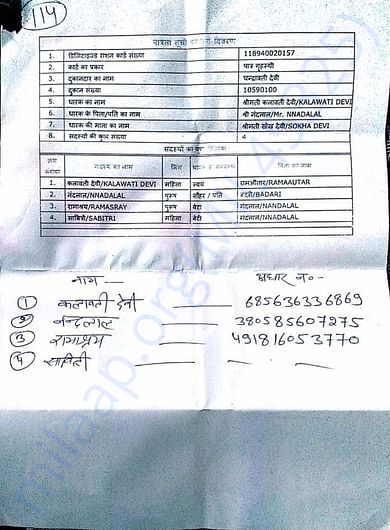 114
पात्रता सूची का विवरण
1. डिजिटाइज्ड राशन कार्ड संख्या 118940020157
2. कार्ड का प्रकार पात्र गृहस्थी
3. दुकानदार का नाम चन्द्रावती देवी
4. दुकान संख्या 10590100
5. धारक का नाम श्रीमती कलावती देवी/KALAWATI DEVI
6. धारक के पिता/पति का नाम श्री नंदलाल/Mr. NNADALAL
7. धारक की माता का नाम श्रीमती सोख देवी/SOKHA DEVI
8. सदस्यों की कुल संख्या 4
सदस्यों का विवरण
क्रम संख्या सदस्य का नाम लिंग पिता का नाम
1. कलावती देवी/KALAWATI DEVI महिला स्वयं रामऔतार/RAMAAUTAR
2. नंदलाल/NNADALAL पुरुष शौहर / पति बदरी/BADARI
3. रामाश्रय/RAMASRAY पुरुष बेटा नंदलाल/NANDALAL
4. साबित्री/SABITRI महिला बेटी नंदलाल/NNADALAL
नाम — आधार न० -
① कलावती देवी — 685636336869
② नन्दलाल — 380585607275
③ रामाश्रय — 491816053770
④ सावित्री — — —
milaap.org